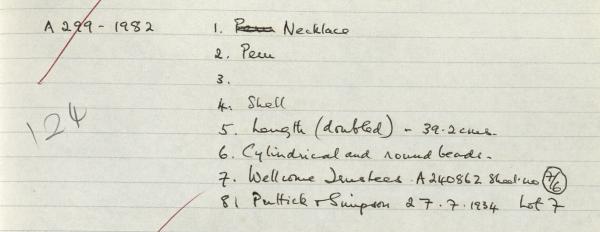 A 299 - 1982
1. Peru Necklace
2. Peru
3.
4. Shell
124
5. Length (doubled) - 39.2cms.
6. Cylindrical and round beads.
7. Wellcome Trustees A240862 Sheet no 7/6
8. Puttick & Simpson 27.7.1934 Lot 7